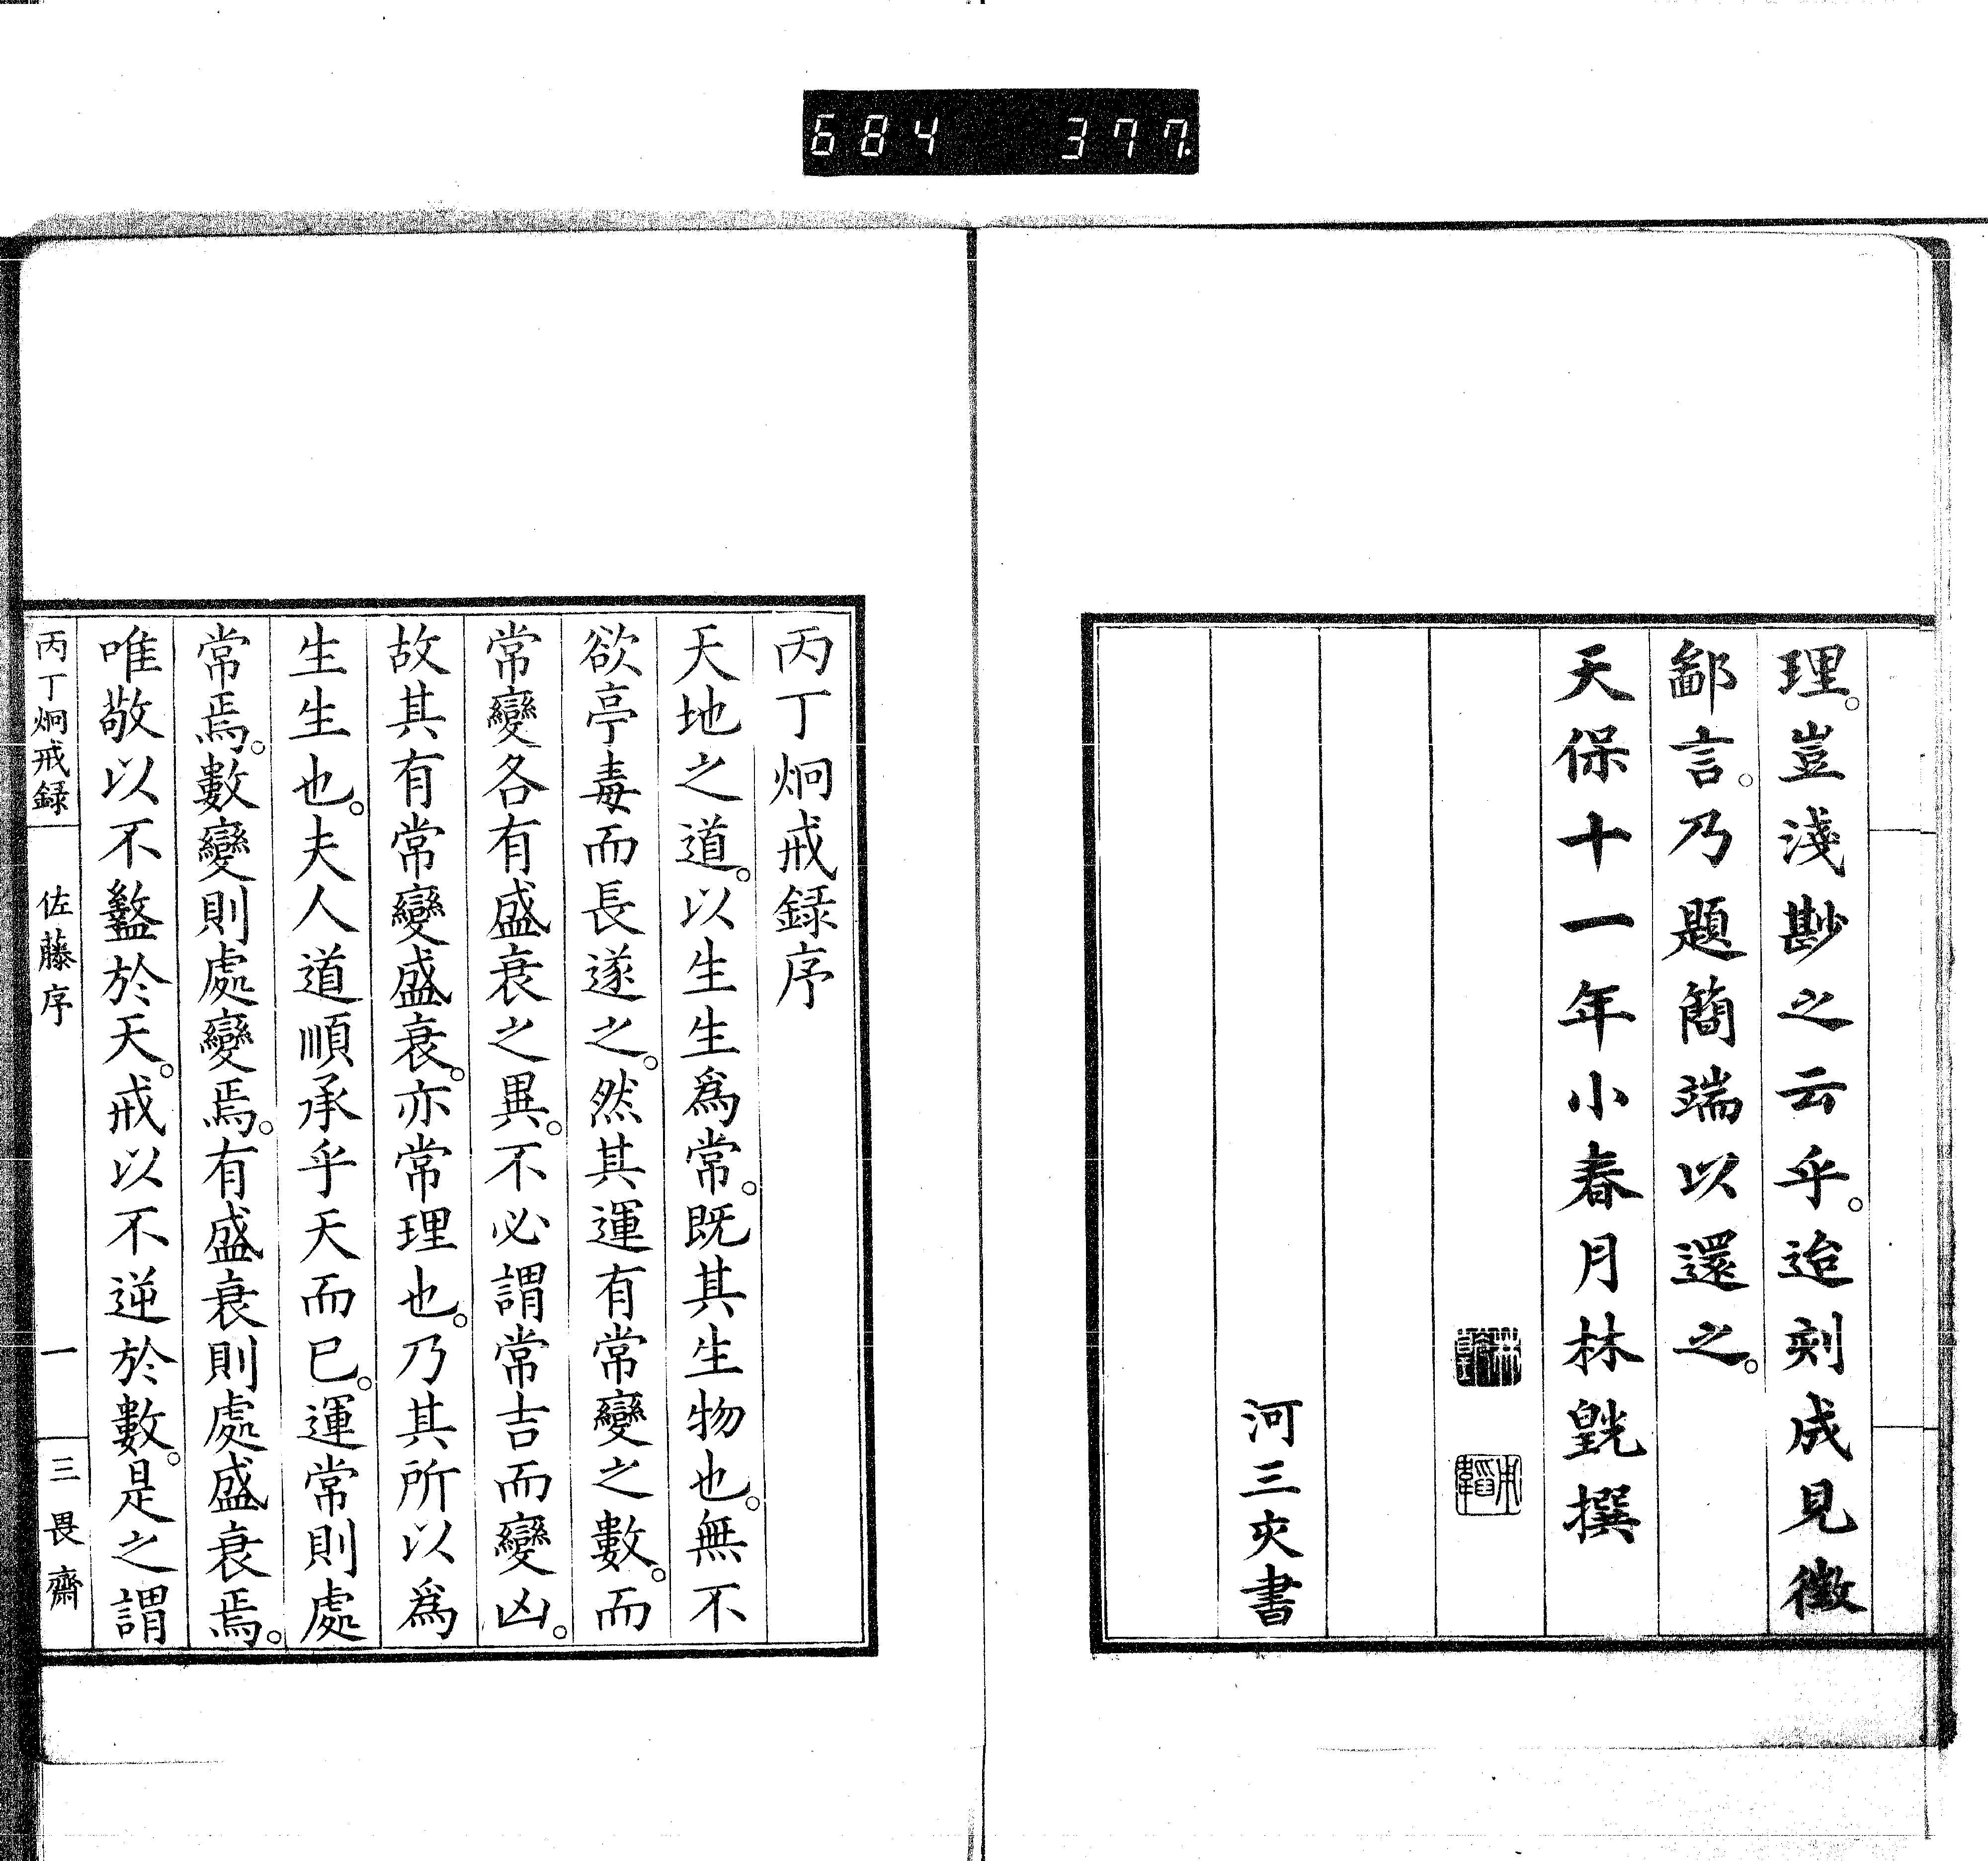 684 377
理。豈淺尠之云乎。迨刻成見徵
鄙言。乃題簡端以還之。
天保十一年小春月林皝撰
河三亥書
丙丁炯戒録序
天地之道。以生生爲常。既其生物也。無不
欲亭毒而長遂之。然其運有常變之數。而
常變各有盛衰之異。不必謂常吉而變凶。
故其有常變盛衰。亦常理也。乃其所以爲
生生也。夫人道順承乎天而已。運常則處
常焉。數變則處變焉。有盛衰則處盛衰焉。
唯敬以不盭於天。戒以不逆於數。是之謂
丙丁炯戒録 佐藤序 一 三畏齋